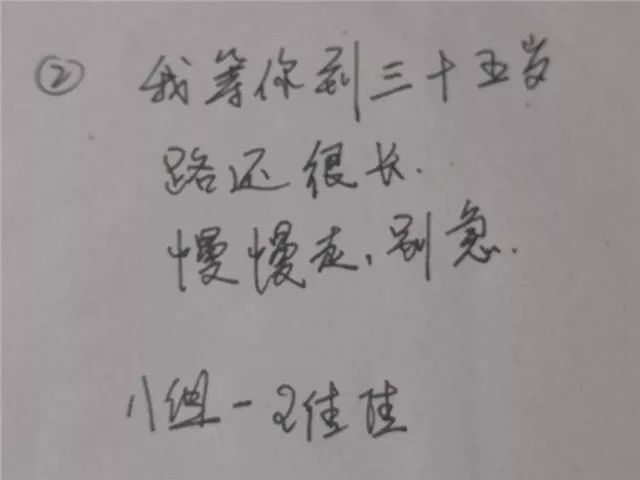 ② 我等你到三十五岁
路还很长.
慢慢走,别急.
11组-2佳佳